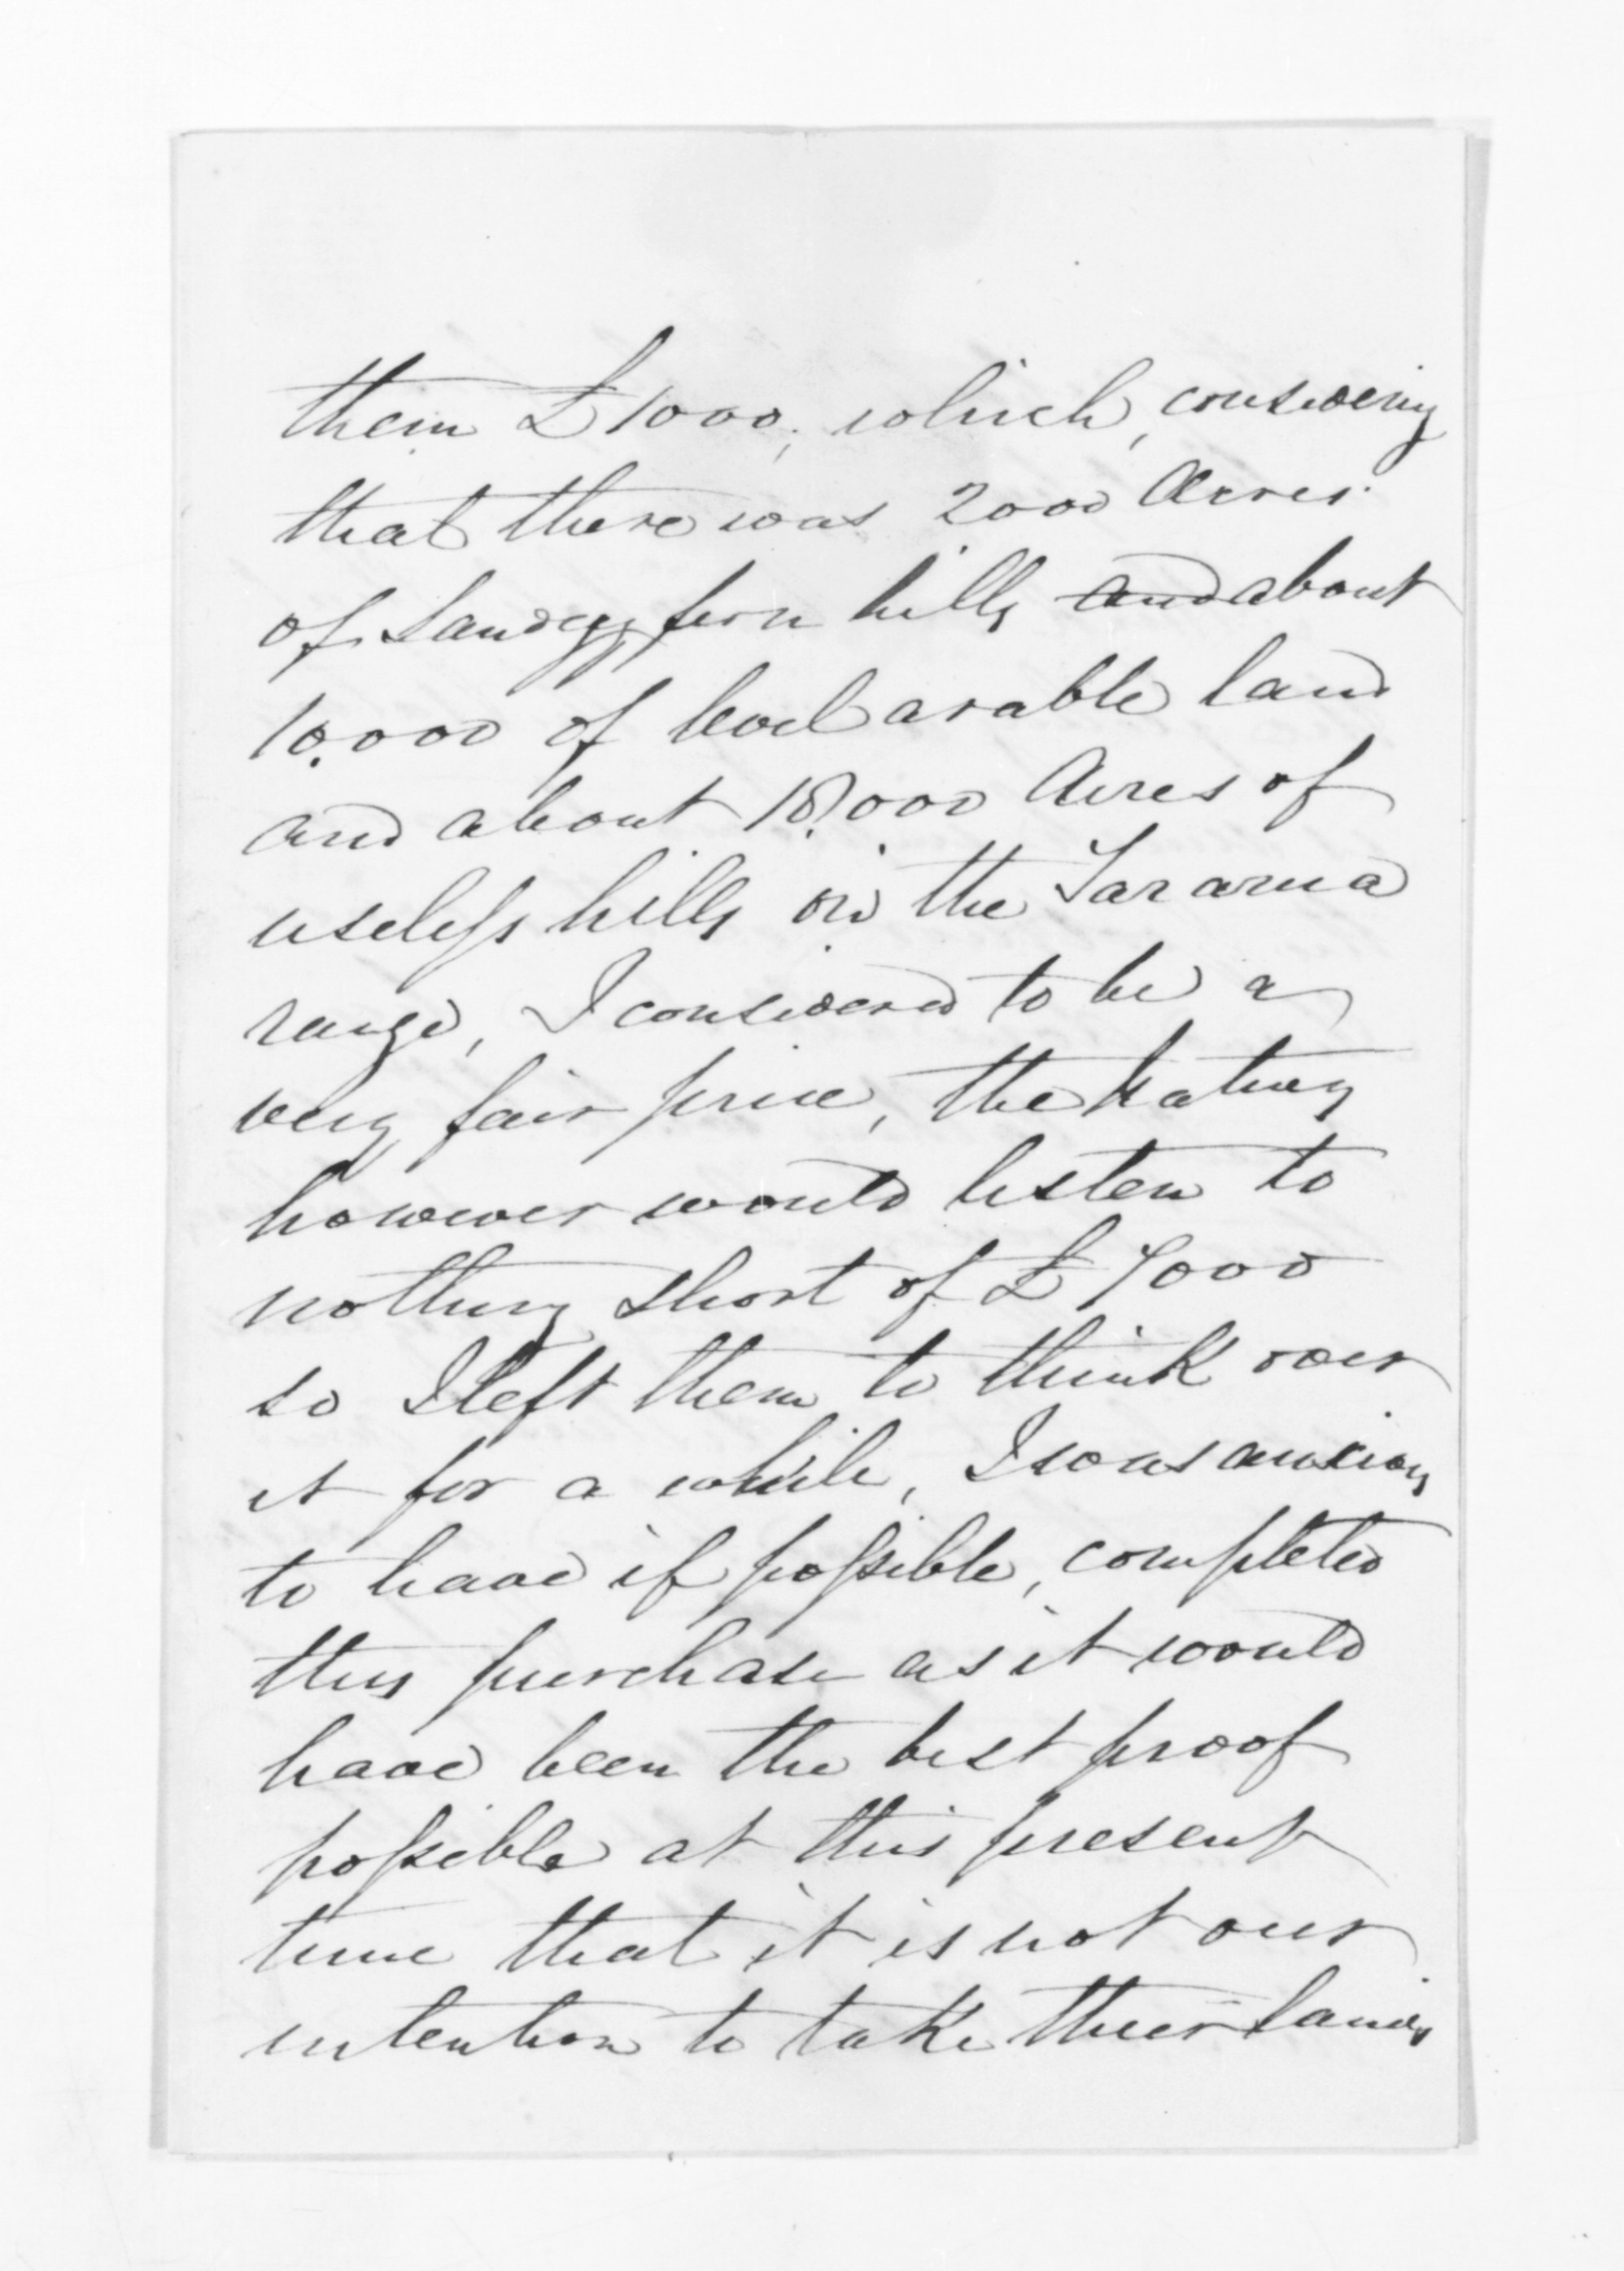 them £1000, which, considering
that there was 2000 Acres
of Sandy fern hills and about
10,000 of level arable land
and about 18,000 Acres of
useless hills on the Tararua
range, I considered to be a
very fair price, the Natives
however would listen to
nothing short of £7000
so I left them to think over
it for a while, I was anxious
to have if possible, completed
this purchase as it would
have been the best proof
possible at this present
time that it is not our
intention to take their lands